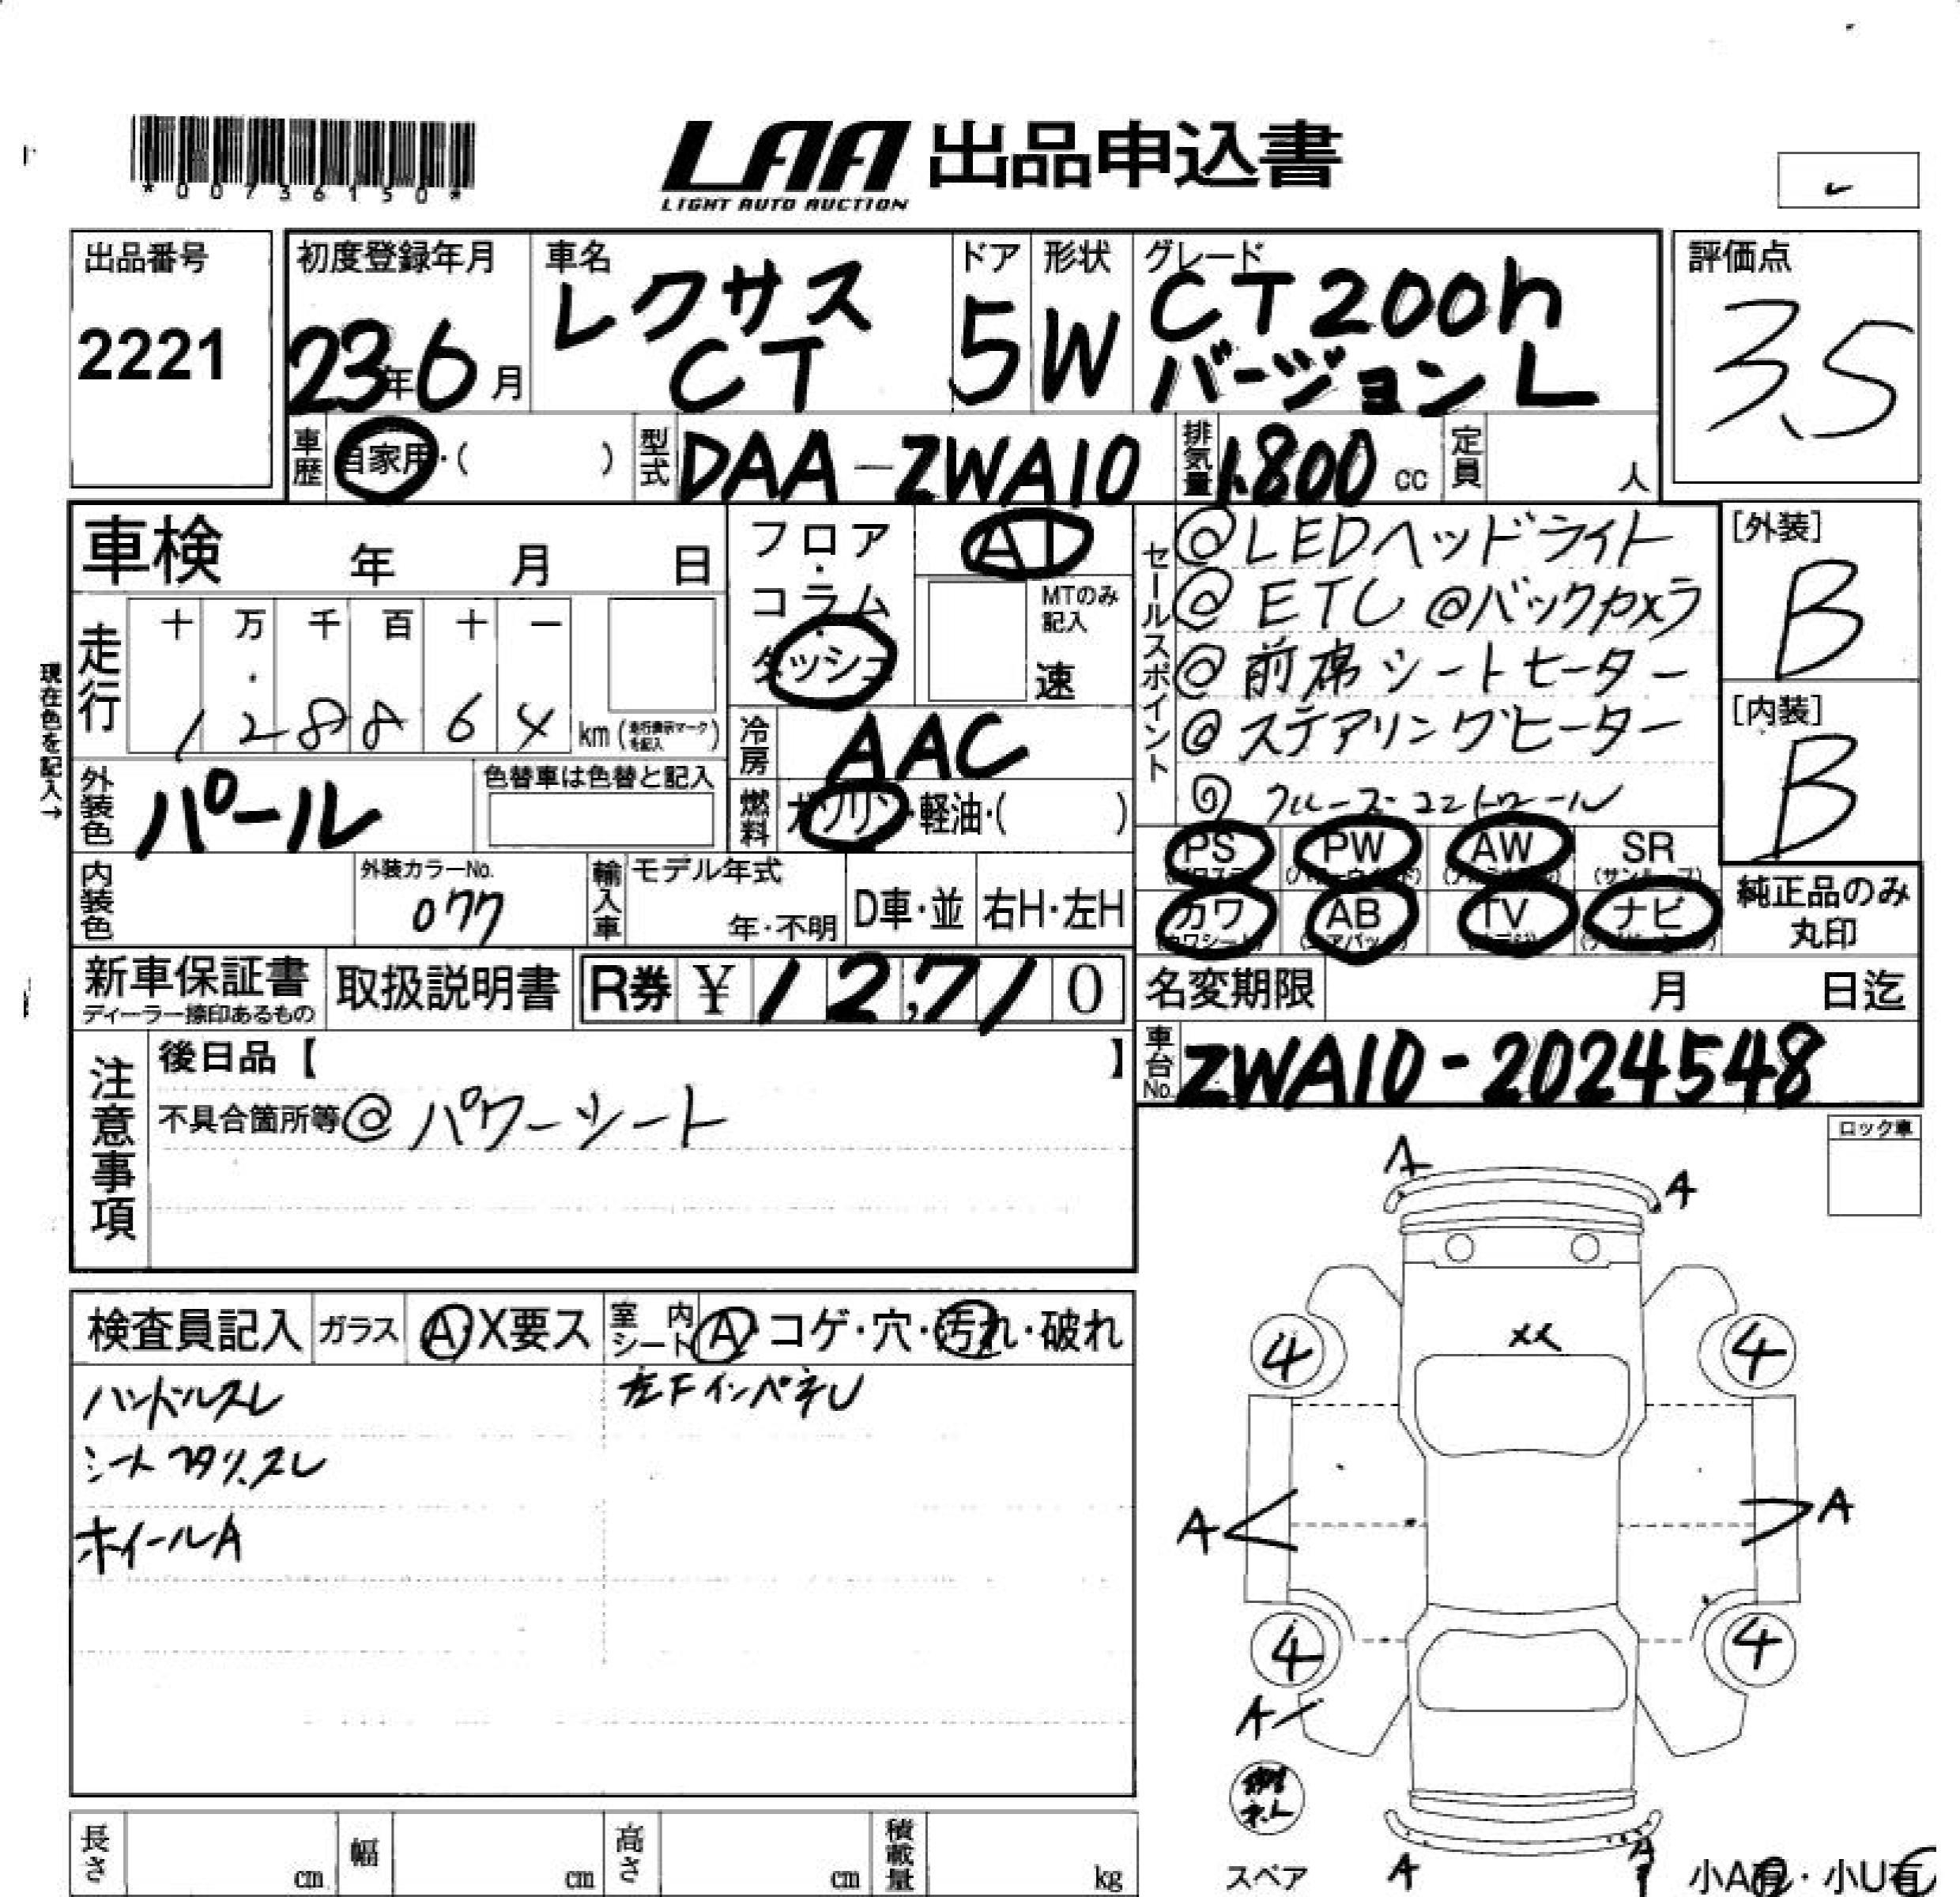 *00736150*
LAA 出品申込書
LIGHT AUTO AUCTION
出品番号
2221
初度登録年月
23年6月
車名
レクサス
CT
ドア
5
形状
W
グレード
CT200h
バージョンL
評価点
3.5
車歴
自家用・( )
型式
DAA-ZWA10
排気量
1,800 cc
定員
人
車検 年 月 日
現在色を記入→
走行
十 万 千 百 十 一
1 2 8 8 6 4 km
フロア
・
コラム
・
ダッシュ
AT
MTのみ
記入
速
冷房
AAC
燃料
ガソリン・軽油・( )
外装色
パール
色替車は色替と記入
内装色
外装カラーNo.
077
輸入車
モデル年式
年・不明
D車・並
右H・左H
新車保証書
ディーラー捺印あるもの
取扱説明書
R券 ¥12,710
セールスポイント
@LEDヘッドライト
@ETC @バックカメラ
@前席シートヒーター
@ステアリングヒーター
@クルーズコントロール
PS PW AW SR
(サンルーフ)
カワ AB TV ナビ
[外装]
B
[内装]
B
純正品のみ
丸印
名変期限 月 日迄
車台No.
ZWA10-2024548
注意事項
後日品【 】
不具合箇所等@パワーシート
ロック車
検査員記入
ガラス
A・X要ス
室内
シート
A・コゲ・穴・汚れ・破れ
ハンドルスレ
左FインパネU
シートヘタリ、スレ
ホイールA
A
A
4
4
A
A
4
4
A
スペア
A
A
小A有・小U有
長さ cm
幅 cm
高さ cm
積載量 kg